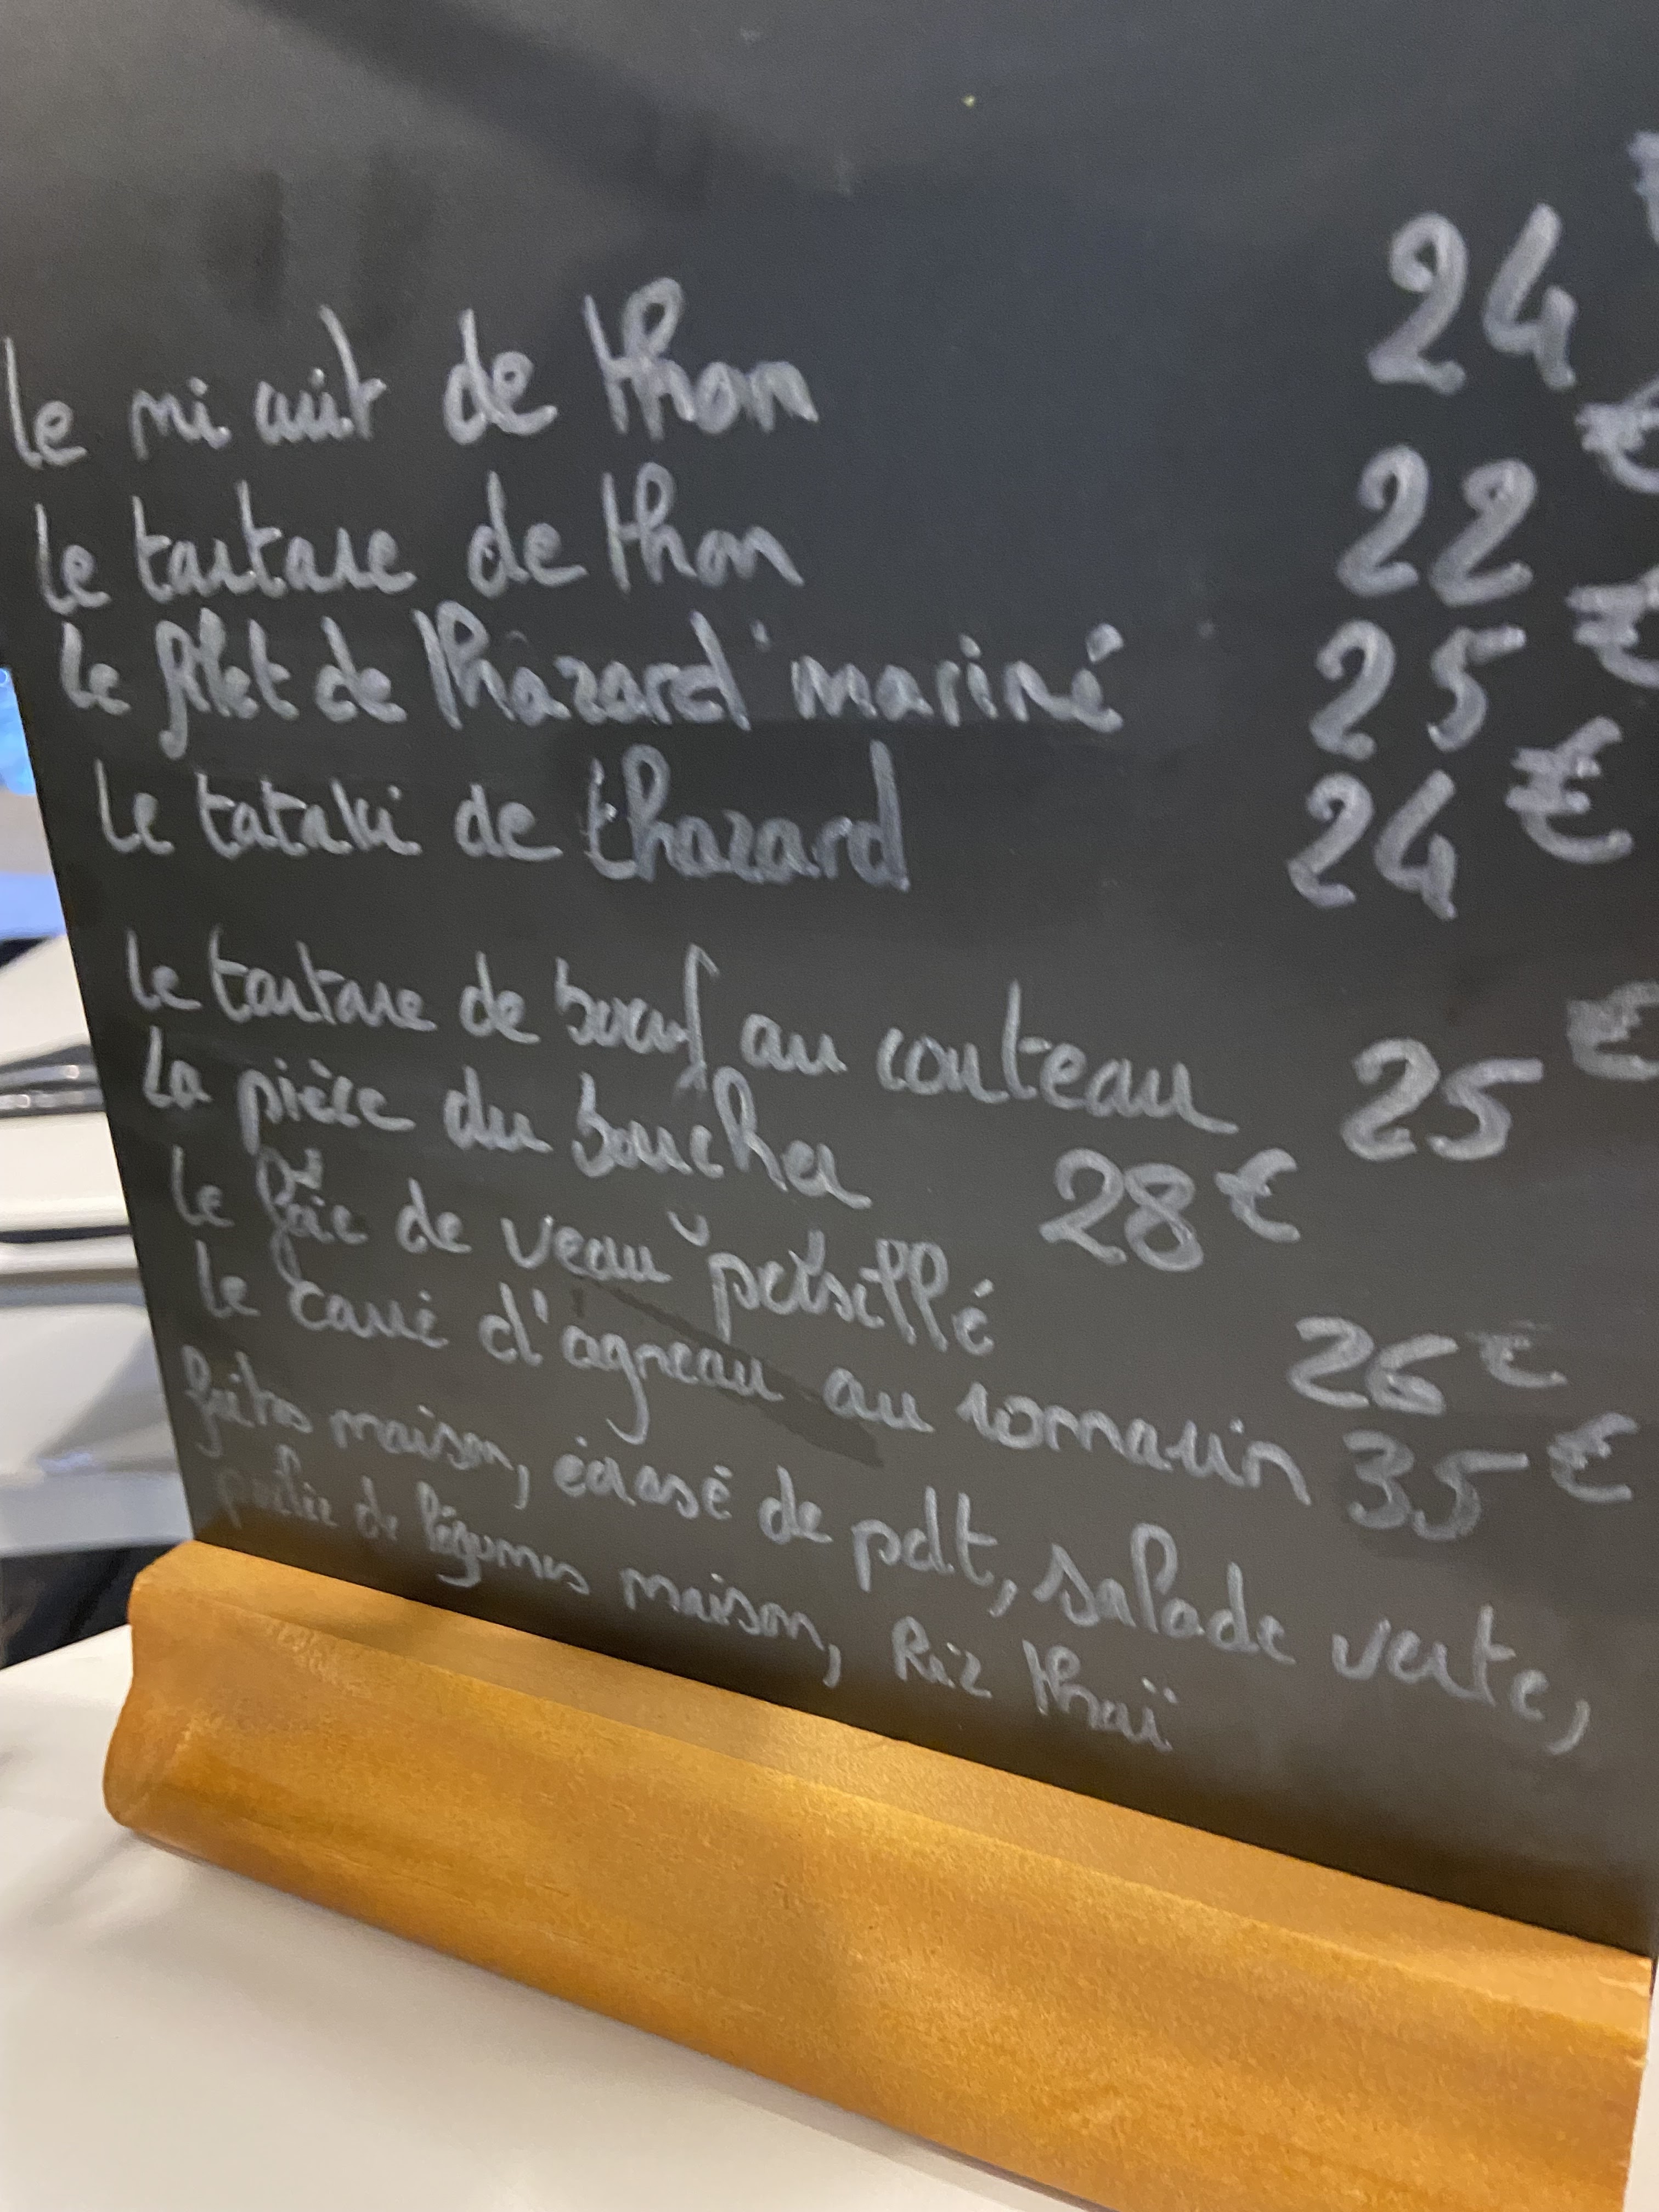 le mi cuit de thon 24 €
le tartare de thon 22 €
le filet de thazard mariné 25 €
le tataki de thazard 24 €
le tartare de boeuf au couteau 25 €
la pièce du boucher 28 €
le foie de veau persillé 26 €
le carré d'agneau au romarin 35 €
frites maison, écrasé de pdt, salade verte,
poêlée de légumes maison, Riz thaï